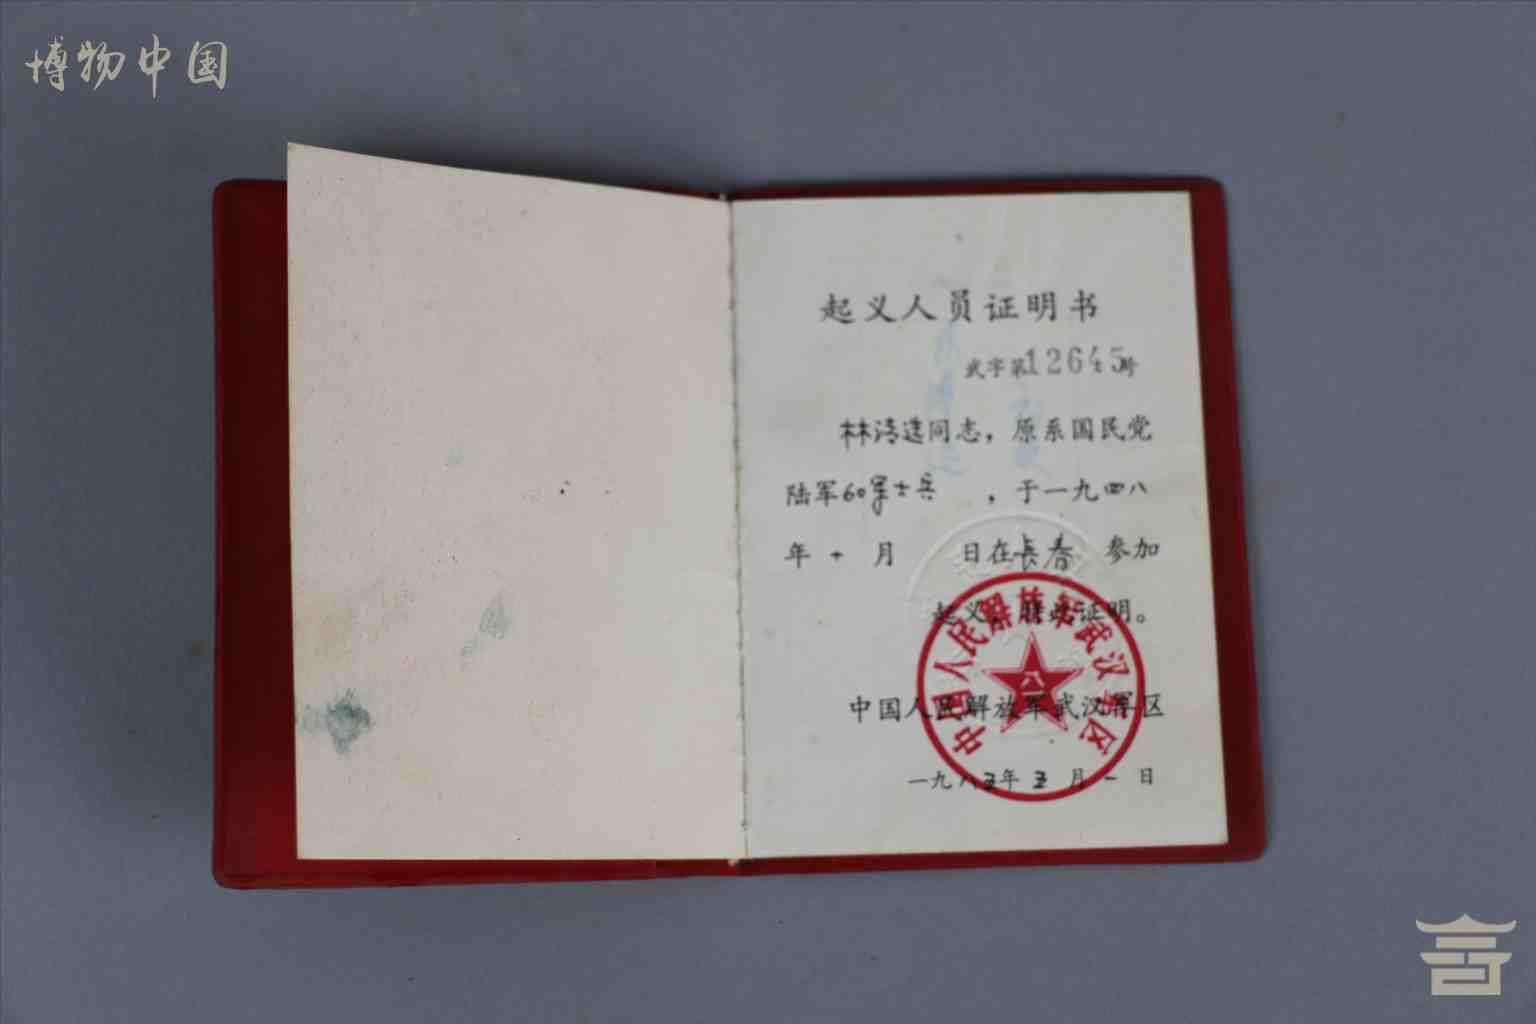 博物中国
起义人员证明书
武字第12645号
林清选同志，原系国民党
陆军60军士兵 ，于一九四八
年 十 月 日在长春 参加
起义，特此证明。
中国人民解放军武汉军区
中国人民解放军武汉军区
八一
一九八五年 五 月 一 日